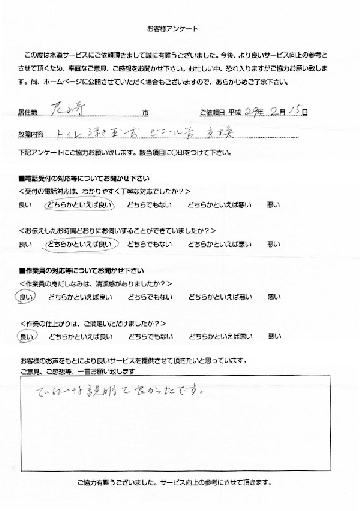 お客様アンケート
この度は水道サービスにご依頼頂きまして誠に有難うございました。今後、より良いサービス向上の参考と
させて頂く為、率直なご意見、ご感想をお聞かせ下さい。お忙しい中、恐れ入りますがご協力お願い致しま
す。尚、ホームページに公開させていただく場合もございますので、あらかじめご了承下さい。
居住地 市 ご依頼日 平成 29年 2月 15日
故障箇所 トイレ
下記アンケートにご協力お願い致します。該当項目に〇印をつけて下さい。
■電話受付の対応等についてお聞かせ下さい
＜受付の電話対応は、わかりやすく丁寧な対応でしたか？＞
良い どちらかといえば良い どちらでもない どちらかといえば悪い 悪い
＜お伝えしたお時間どおりにお伺いすることができていましたか？＞
良い どちらかといえば良い どちらでもない どちらかといえば悪い 悪い
■作業員の対応等についてお聞かせ下さい
＜作業員の身だしなみは、清潔感がありましたか？＞
良い どちらかといえば良い どちらでもない どちらかといえば悪い 悪い
＜作業の仕上がりは、ご満足いただけましたか？＞
良い どちらかといえば良い どちらでもない どちらかといえば悪い 悪い
お客様のお声をもとにより良いサービスを提供させて頂きたいと思っています。
ご意見、ご感想等、一言お願い致します
ていねいな説明で良かったです。
ご協力有難うございました。サービス向上の参考にさせて頂きます。